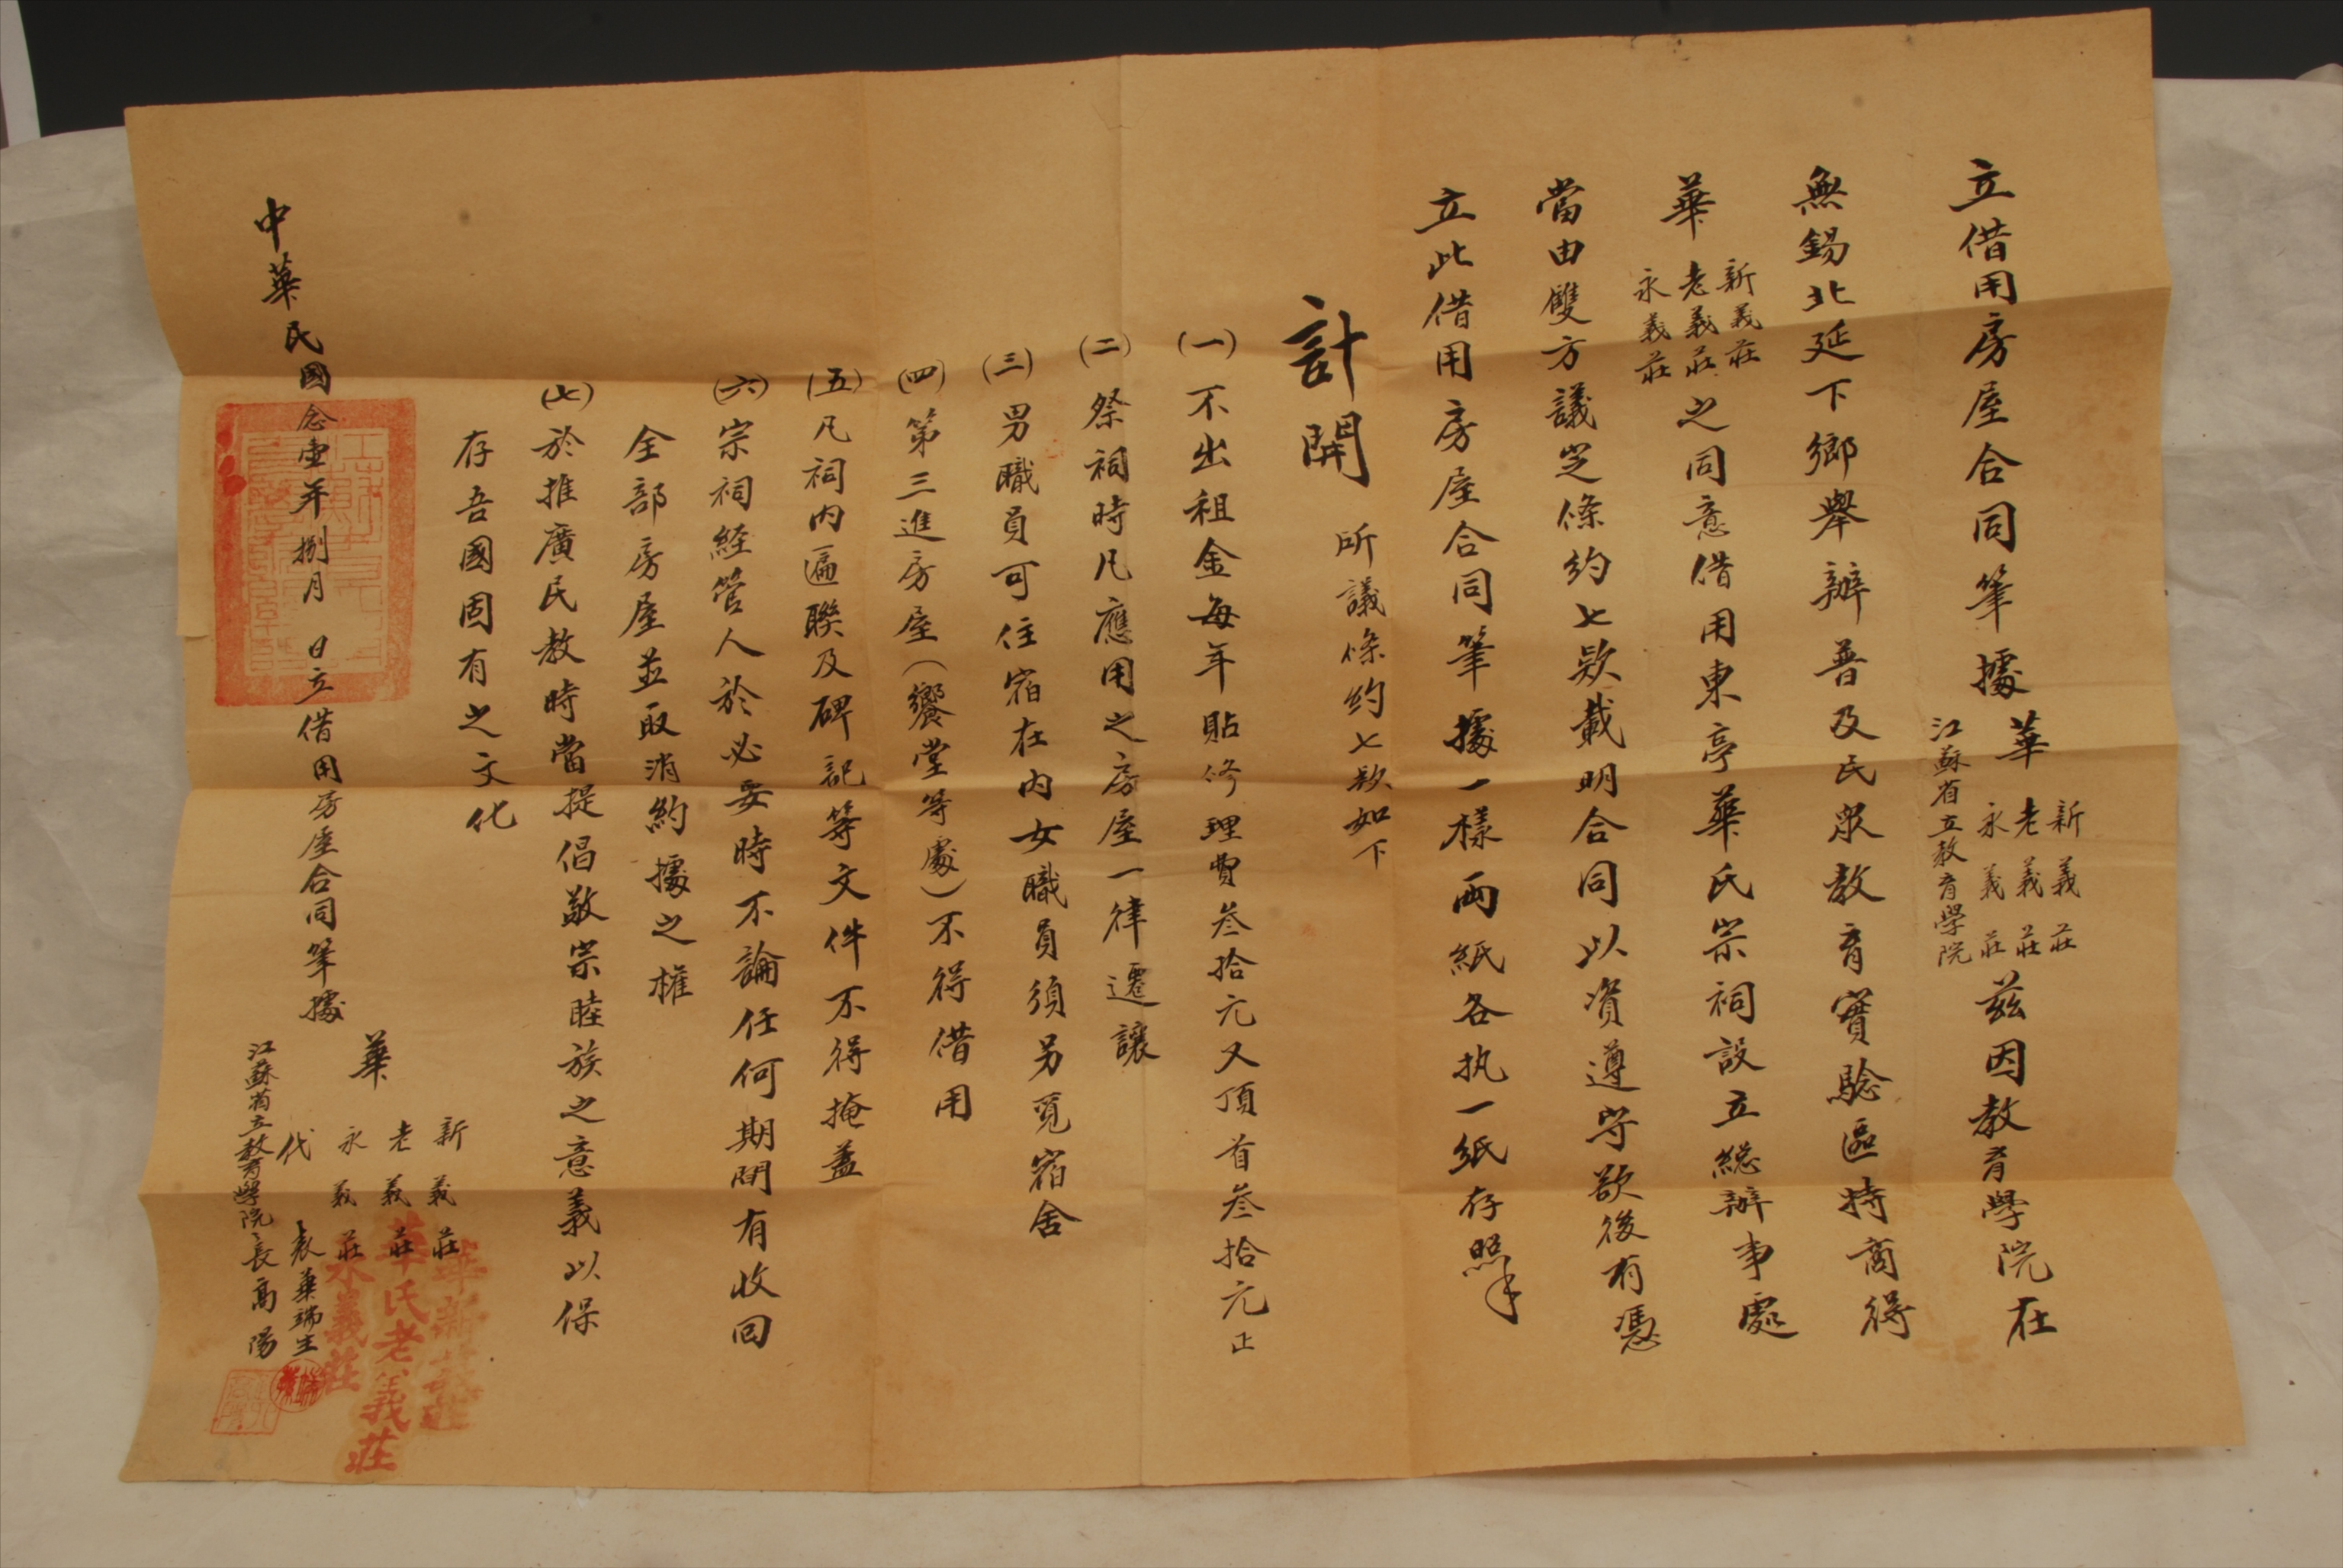 立借用房屋合同筆據華新義莊老義莊永義莊江蘇省立教育學院茲因教育學院在
無錫北延下鄉舉辦普及民眾教育實驗區特商得
華新義莊老義莊永義莊之同意借用東亭華氏宗祠設立總辦事處
當由雙方議定條約七欵載明合同以資遵守欲後有憑
立此借用房屋合同筆據一樣兩紙各执一紙存照
計開 所議條約七欵如下
(一)不出租金每年貼修理費叁拾元又頂首叁拾元正
(二)祭祠時凡應用之房屋一律遷讓
(三)男職員可住宿在內女職員須另覓宿舍
(四)第三進房屋(饗堂等處)不得借用
(五)凡祠內匾聯及碑記等文件不得掩蓋
(六)宗祠経管人於必要時不論任何期間有收回
全部房屋並取消約據之權
(七)於推廣民教時當提倡敬宗睦族之意義以保
存吾國固有之文化
中華民國念壹年捌月 日立借用房屋合同筆據
華
新義莊
老義莊
永義莊
代表華瑞生
江蘇省立教育學院長高陽
華新義莊
華氏老義莊
永義莊